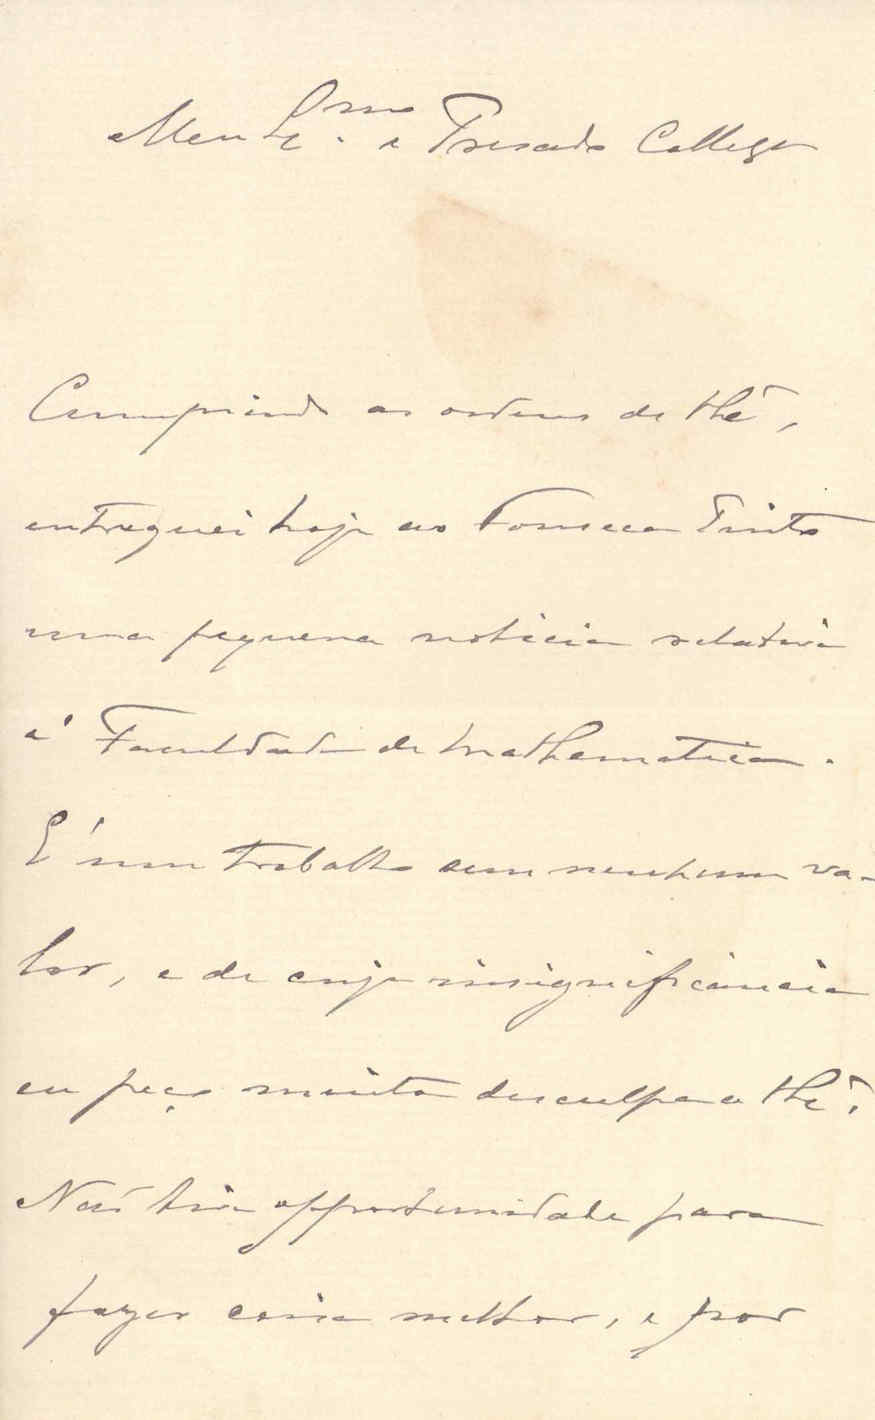 Meu Ex.mo e Presado Collega
Cumprindo as ordens de V. Ex.ª,
entreguei hoje ao Fonseca Pinto
uma pequena noticia relativa
á Faculdade de Mathematica.
E' um trabalho sem nenhum va-
lor, e de cuja insignificancia
eu peço muita desculpa a V. Ex.ª,
Não tive opportunidade para
fazer coisa melhor, e por